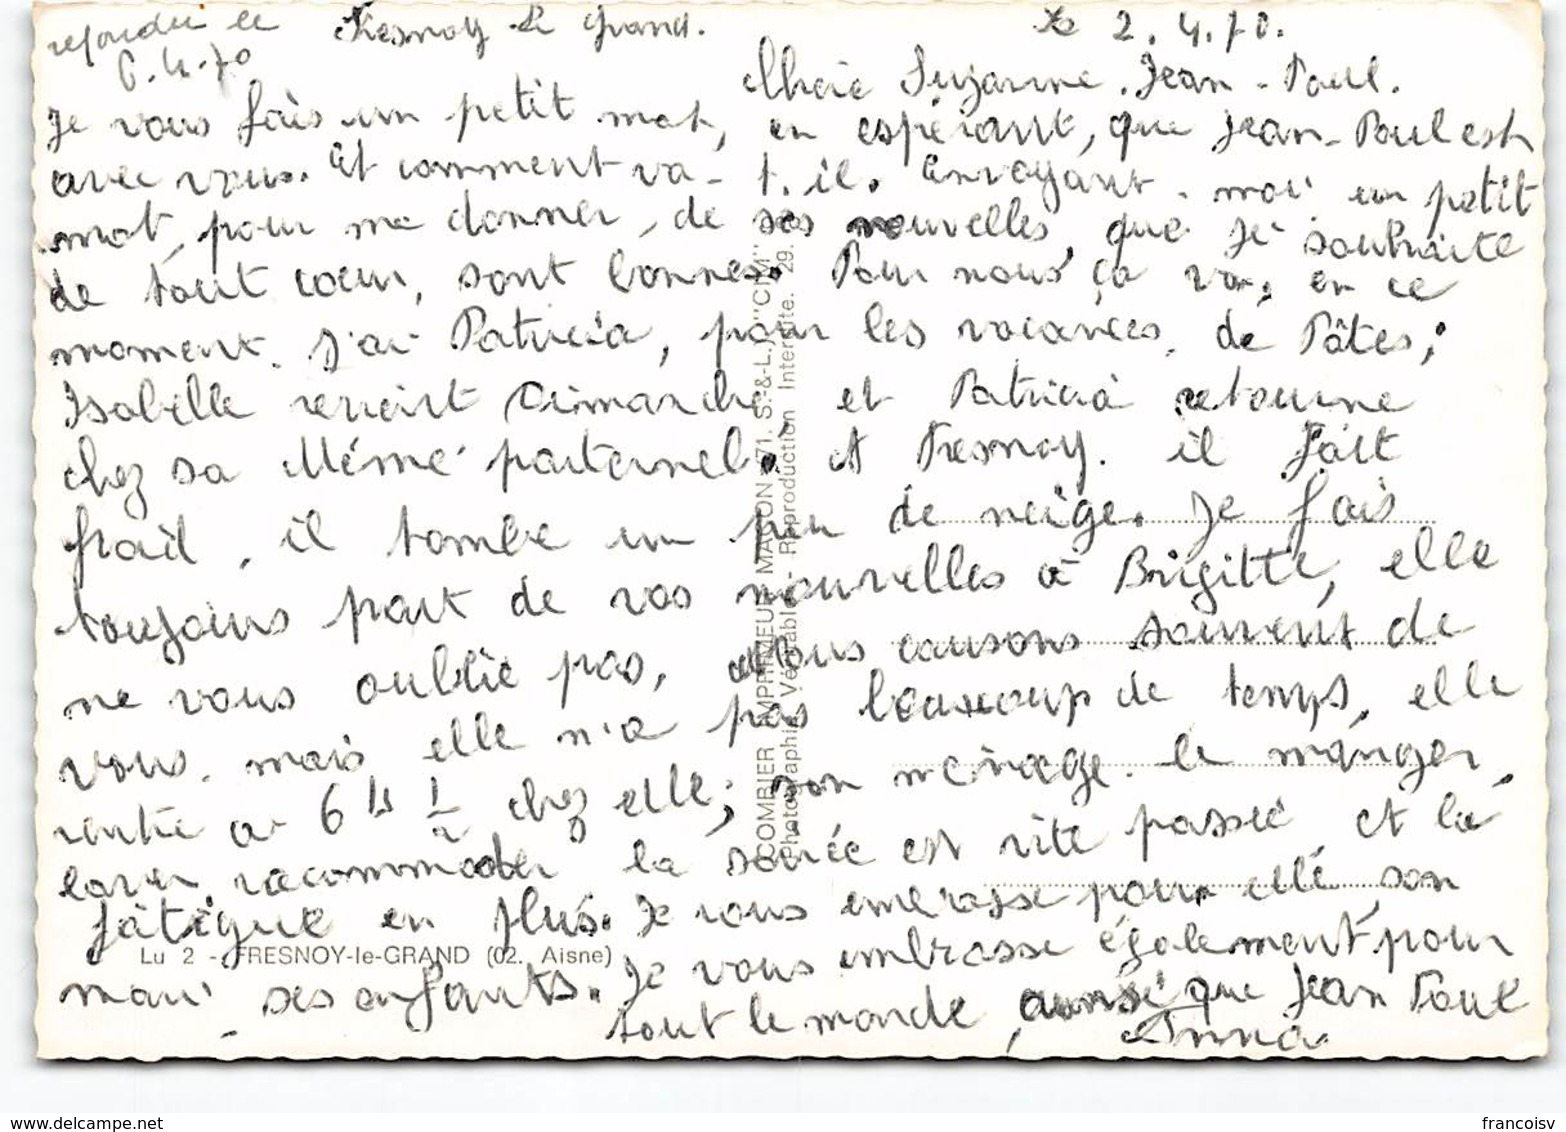 répondu le
6.4.70
Fresnoy le Grand. Le 2.4.70.
Chère Suzanne. Jean-Paul.
Je vous fais un petit mot, en espérant, que Jean-Paul est
avec vous. Et comment va-t.il. Envoyant-moi un petit
mot, pour me donner, de ses nouvelles, que je souhaite
de tout cœur, sont bonnes. Pour nous ça va, en ce
moment. J'ai Patricia, pour les vacances, de Pâtes,
Isabelle revient Dimanche, et Patricia retourne
chez sa Mémé paternel. A Fresnoy. il fait
froid, il tombe un peu de neige. Je fais
toujours part de vos nouvelles à Brigitte, elle
ne vous oublie pas, nous causons souvent de
vous. mais elle n'a pas beaucoup de temps, elle
rentre a 6 h ½ chez elle, son ménage. le manger,
laver, racommoder la soirée est vite passé et la
fatigue en plus. Je vous embrasse pour elle, son
mari, ses enfants. Je vous embrasse également pour
tout le monde, aussi que Jean Paul
Anna
Lu 2 - FRESNOY-le-GRAND (02. Aisne)
COMBIER IMPRIMEUR MACON (71. S.-&-L.) "CIM"
Photographie Véritable - Reproduction Interdite. 29.
www.delcampe.net
francoisv